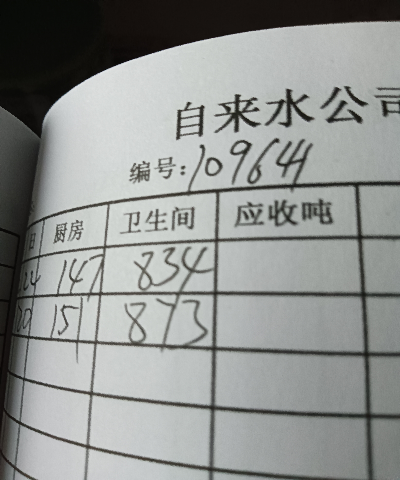 自来水公司
编号:109641
日 厨房 卫生间 应收吨
24 147 834
20 151 873